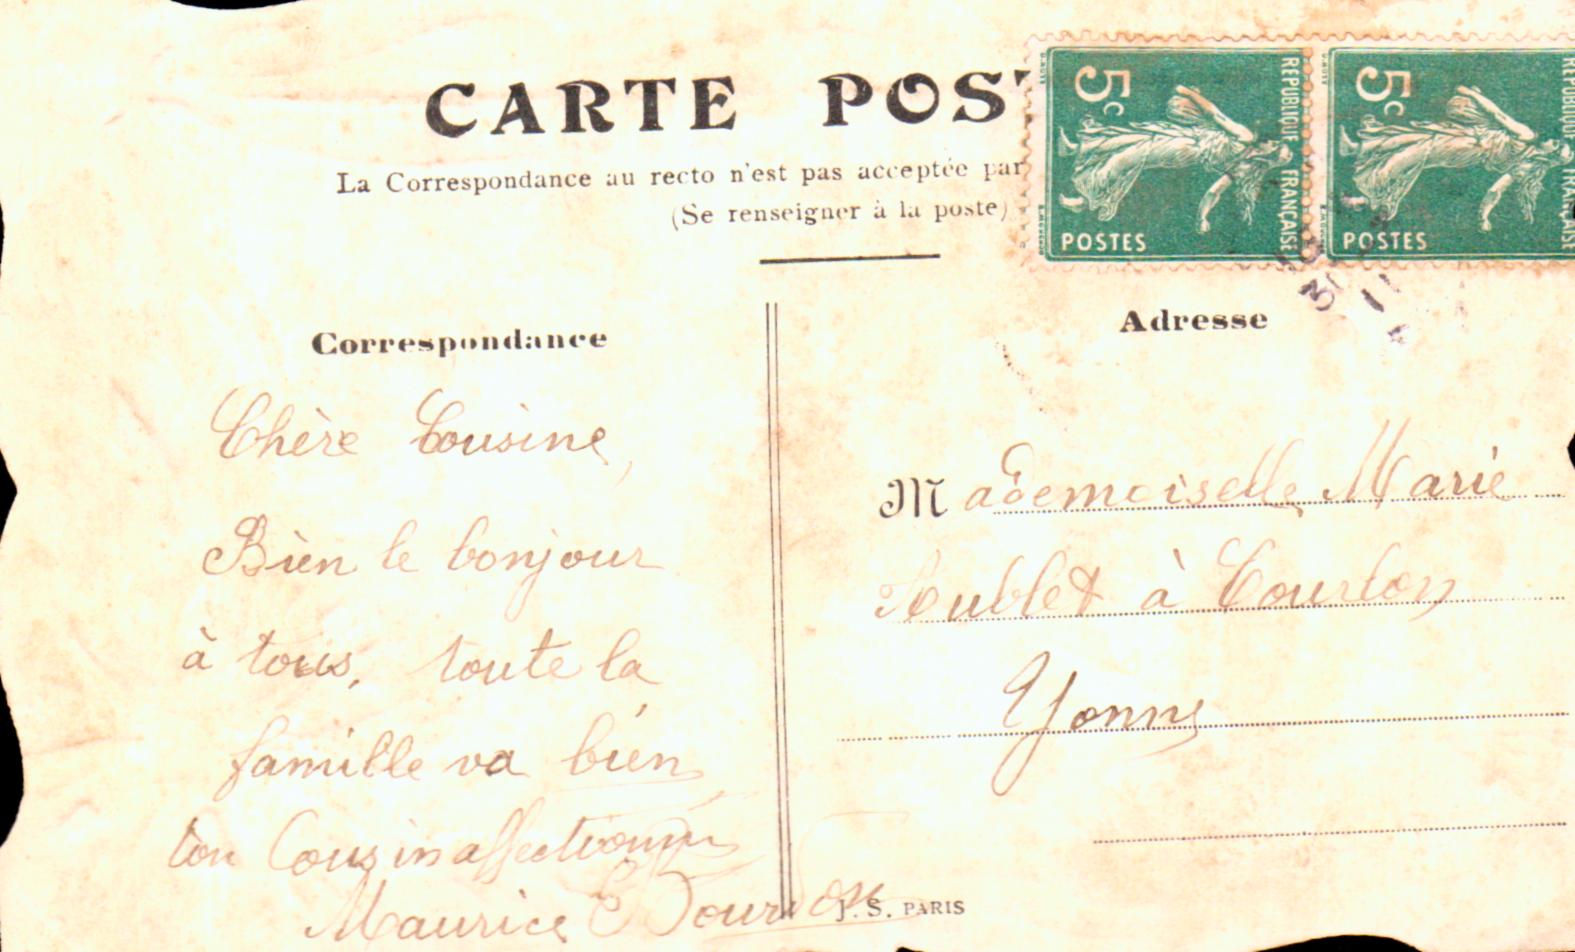 CARTE POST
La Correspondance au recto n'est pas acceptée par
(Se renseigner à la poste)
5c
RÉPUBLIQUE FRANÇAISE
POSTES
5c
RÉPUBLIQUE FRANÇAISE
POSTES
31
11
Correspondance
Chère Cousine,
Bien le bonjour
à tous, toute la
famille va bien
ton Cousin affectionné
Maurice Bourdon
Adresse
Mademoiselle Marie
à Courlon
Yonne
J. S. PARIS